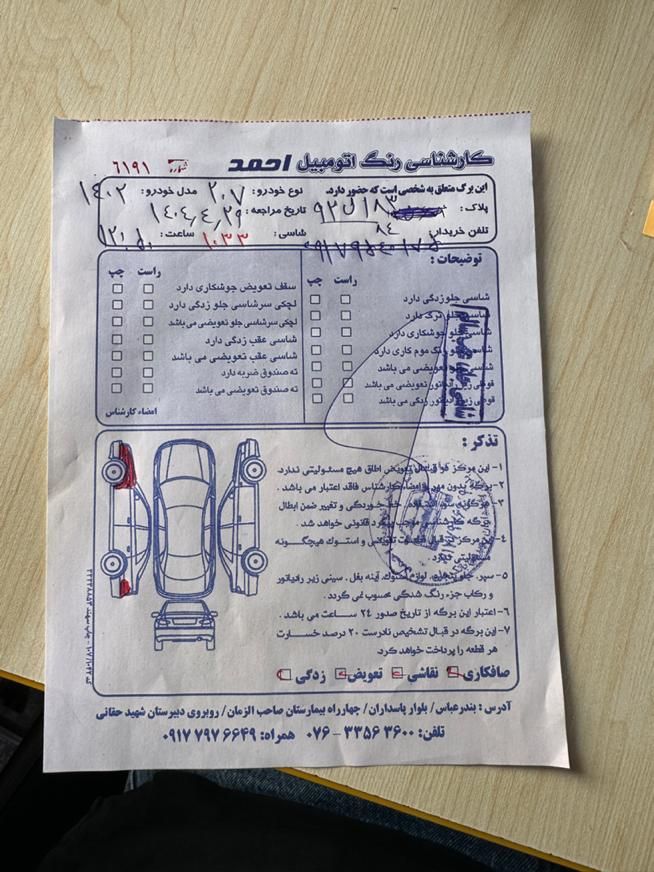 کارشناسی رنگ اتومبیل احمد
۶۱۹۱
این برگ متعلق به شخصی است که حضور دارد. نوع خودرو: ۲۰۷ مدل خودرو: ۱۴۰۲
پلاک: ۹۲ل۱۸۳ ۸۴ تاریخ مراجعه: ۱۴۰۴،۴،۲۹
تلفن خریدار: شاسی: ۱۰۳۳ ساعت: ۱۲:۵۰
توضیحات:
راست چپ
شاسی جلو زدگی دارد
شاسی جلو ترک دارد
شاسی جلو جوشکاری دارد
شاسی جلو رنگ موم کاری دارد
شاسی جلو تعویضی می باشد
قوطی زیر رادیاتور تعویضی می باشد
قوطی زیر رادیاتور زدگی می باشد
راست چپ
سقف تعویض جوشکاری دارد
لچکی سرشاسی جلو زدگی دارد
لچکی سرشاسی جلو تعویضی می باشد
شاسی عقب زدگی دارد
شاسی عقب تعویضی می باشد
ته صندوق ضربه دارد
ته صندوق تعویضی می باشد
امضاء کارشناس
تذکر:
۱- این مرکز در قبال تعویض اطاق هیچ مسئولیتی ندارد.
۲- برگه بدون مهر و امضاء کارشناس فاقد اعتبار می باشد.
۳- هرگونه سوء استفاده، خط خوردگی و تغییر ضمن ابطال
برگه کارشناسی موجب پیگرد قانونی خواهد شد.
۴- این مرکز در قبال قطعات تعویض و استوک هیچگونه
مسئولیتی ندارد.
۵- سپر، جلو پنجره، لوازم استوک، آینه بغل، سینی زیر رادیاتور
و رکاب جزء رنگ شدگی محسوب نمی گردد.
۶- اعتبار این برگه از تاریخ صدور ۲۴ ساعت می باشد.
۷- این برگه در قبال تشخیص نادرست ۲۰ درصد خسارت
هر قطعه را پرداخت خواهد کرد.
صافکاری نقاشی تعویض زدگی
آدرس: بندرعباس/ بلوار پاسداران/ چهارراه بیمارستان صاحب الزمان/ روبروی دبیرستان شهید حقانی
تلفن: ۳۶۰۰ ۳۳۵۶ - ۰۷۶ همراه: ۶۶۴۹ ۷۹۷ ۰۹۱۷